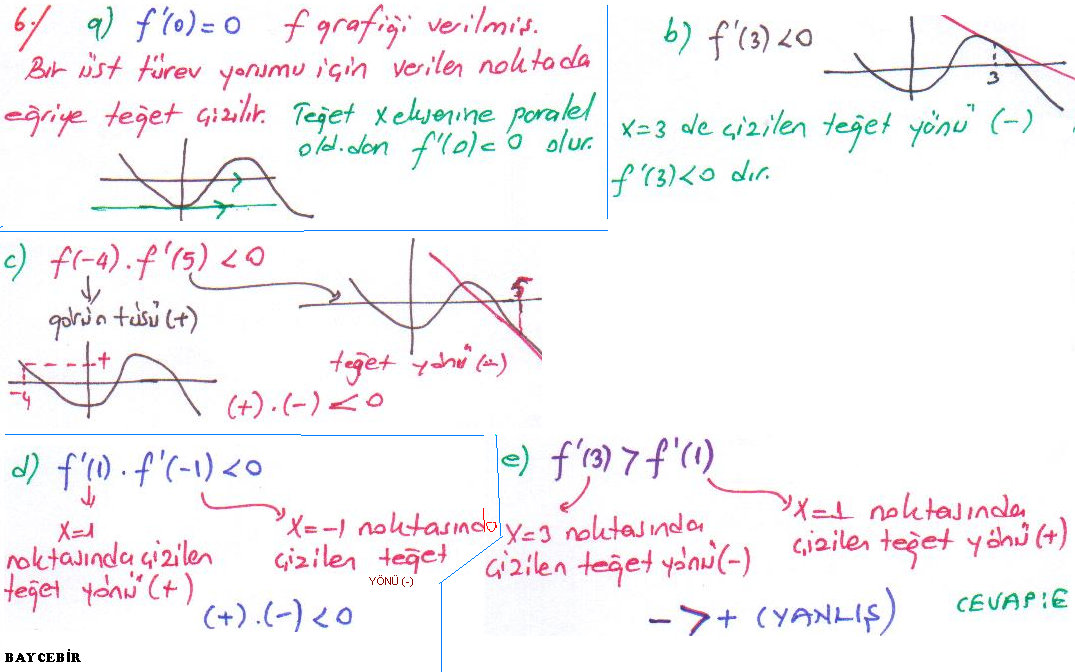 6-) a) f'(0)=0 f grafiği verilmiş.
Bir üst türev yorumu için verilen noktada
eğriye teğet çizilir. Teğet x eksenine paralel
old.dan f'(0)=0 olur.
b) f'(3)<0
3
x=3 de çizilen teğet yönü (-)
f'(3)<0 dır.
c) f(-4).f'(5)<0
görüntüsü (+)
5
teğet yönü (-)
+
-4
(+).(-)<0
d) f'(1).f'(-1)<0
x=1
noktasında çizilen
teğet yönü (+)
x=-1 noktasında
çizilen teğet
YÖNÜ (-)
(+).(-)<0
e) f'(3)>f'(1)
x=3 noktasında
çizilen teğet yönü (-)
x=1 noktasında
çizilen teğet yönü (+)
- > + (YANLIŞ)
CEVAP:E
BAYCEBİR